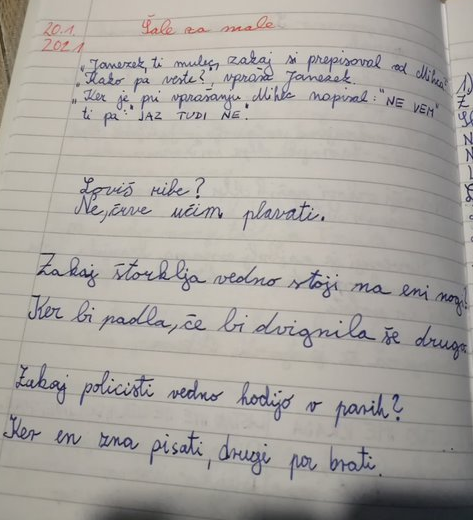 20.1. Šale za male
2021
"Janezek, ti mulec, zakaj si prepisoval od Mihca?"
"Kako pa veste?", vpraša Janezek.
"Ker je pri vprašanju Mihec napisal: "NE VEM"
ti pa: "JAZ TUDI NE".
Loviš ribe?
Ne, črve učim plavati.
Zakaj štorklja vedno stoji na eni nogi?
Ker bi padla, če bi dvignila še drugo.
Zakaj policisti vedno hodijo v parih?
Ker en zna pisati, drugi pa brati.
1)